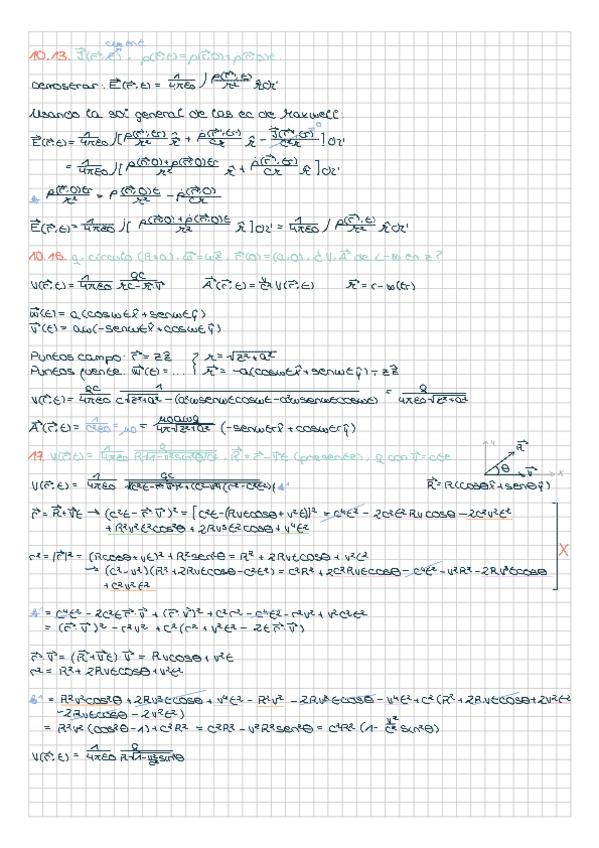 cte en t
10.13. J(r',t), ρ(r',t) = ρ(r',0) + ρ̇(r',0)t
Demostrar: E(r,t) = 1/4πε0 ∫ ρ(r',t)/r² r̂ dτ'
Usando la sol general de las ec de Maxwell:
E(r,t) = 1/4πε0 ∫[ρ(r',tr)/r² r̂ + ρ̇(r',tr)/cr r̂ - J̇(r',tr)/c²r] dτ'
= 1/4πε0 ∫[ρ(r',0)+ρ̇(r',0)tr/r² r̂ + ρ̇(r',tr)/cr r̂] dτ'
ρ̇(r',0)tr/r² = ρ̇(r',0)t/r² - ρ̇(r',0)/cr
E(r,t) = 1/4πε0 ∫[ρ(r',0)+ρ̇(r',0)t/r² r̂] dτ' = 1/4πε0 ∫ ρ(r',t)/r² r̂ dτ'
V(r,t) = 1/4πε0 qc/rc-r·v A(r,t) = v/c² V(r,t) r = r-w(tr)
w(t) = a(coswt x̂ + senwt ŷ)
v(t) = aw(-senwt x̂ + coswt ŷ)
Puntos campo: r = zẑ } r = √z²+a²
Puntos fuente: w(t) = ... } r = -a(coswt x̂ + senwt ŷ) + zẑ
V(r,t) = qc/4πε0 1/c√z²+a² - (a²wsenwtcoswt - a²wsenwtcoswt) = q/4πε0√z²+a²
A(r,t) = 1/c²ε0 = μ0 = μ0awq/4π√z²+a² (-senwt x̂ + coswt ŷ)
17. V(r,t) = 1/4πε0 q/R√1-v²sen²θ/c², R = r-vt (presente), q con v = cte
y
R
θ
v
x
V(r,t) = 1/4πε0 qc/√(c²t-r·v)²+(c²-v²)(r²-c²t²) A
R = R(cosθ x̂ + senθ ŷ)
r = R+vt → (c²t-r·v)² = [c²t-(Rvcosθ+v²t)]² = c⁴t² - 2c²t²Rvcosθ - 2c²v²t²
+ R²v²cos²θ + 2Rv³tcosθ + v⁴t²
X
r² = |r|² = (Rcosθ+vt)² + R²sen²θ = R² + 2Rvtcosθ + v²t²
→ (c²-v²)(R²+2Rvtcosθ-c²t²) = c²R² + 2c²Rvtcosθ - c⁴t² - v²R² - 2Rv³tcosθ
+ c²v²t²
A = c⁴t² - 2c²t r·v + (r·v)² + c²r² - c⁴t² - r²v² + v²c²t²
= (r·v)² - r²v² + c²(r² + v²t² - 2t r·v)
r·v = (R+vt)·v = Rvcosθ + v²t
r² = R² + 2Rvtcosθ + v²t²
= R²v²cos²θ + 2Rv³tcosθ + v⁴t² - R²v² - 2Rv³tcosθ - v⁴t² + c²(R² + 2Rvtcosθ + 2v²t²
- 2Rvtcosθ - 2v²t²)
= R²v²(cos²θ-1) + c²R² = c²R² - v²R²sen²θ = c²R²(1 - v²/c² sen²θ)
V(r,t) = 1/4πε0 q/R√1-v²/c²senθ